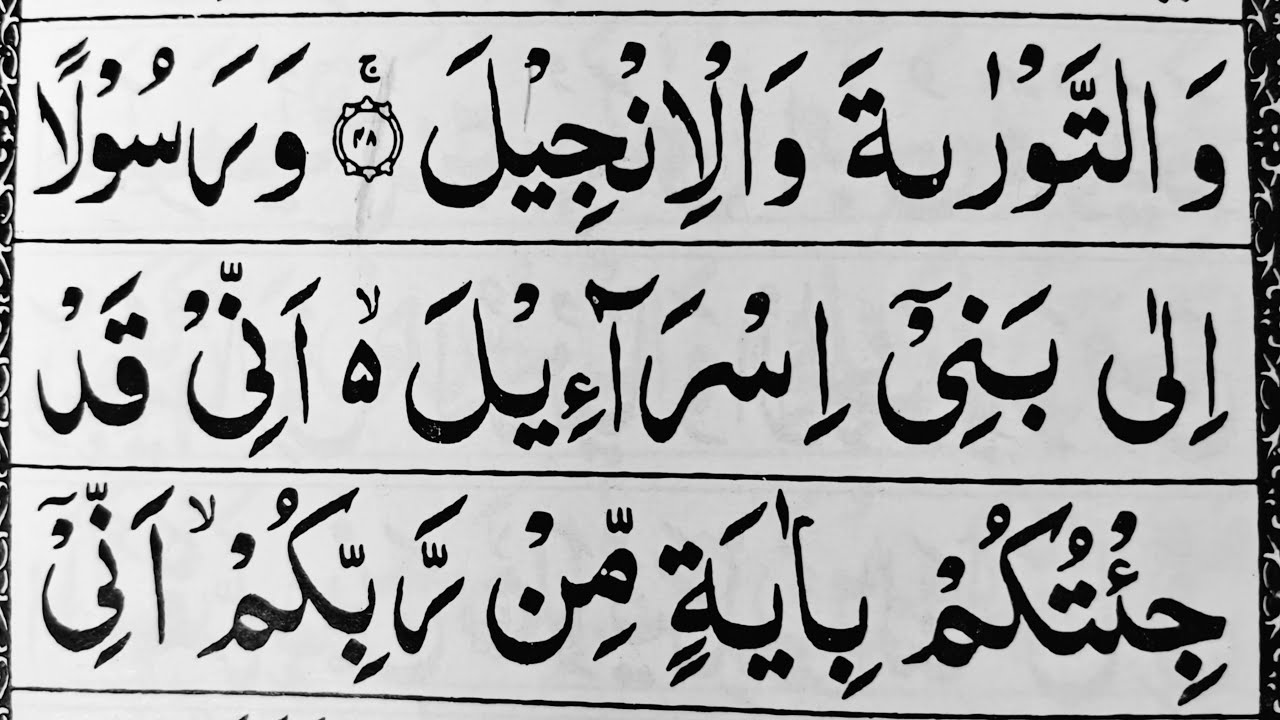 وَ التَّوْرٰىةَ وَالْاِنْجِيْلَ ۚ ﴿۴۸﴾ وَ رَسُوْلًا
اِلٰى بَنِىْٓ اِسْرَآءِيْلَ ۙ۵ اَنِّىْ قَدْ
جِئْتُكُمْ بِاٰيَةٍ مِّنْ رَّبِّكُمْ ۙ اَنِّىْٓ